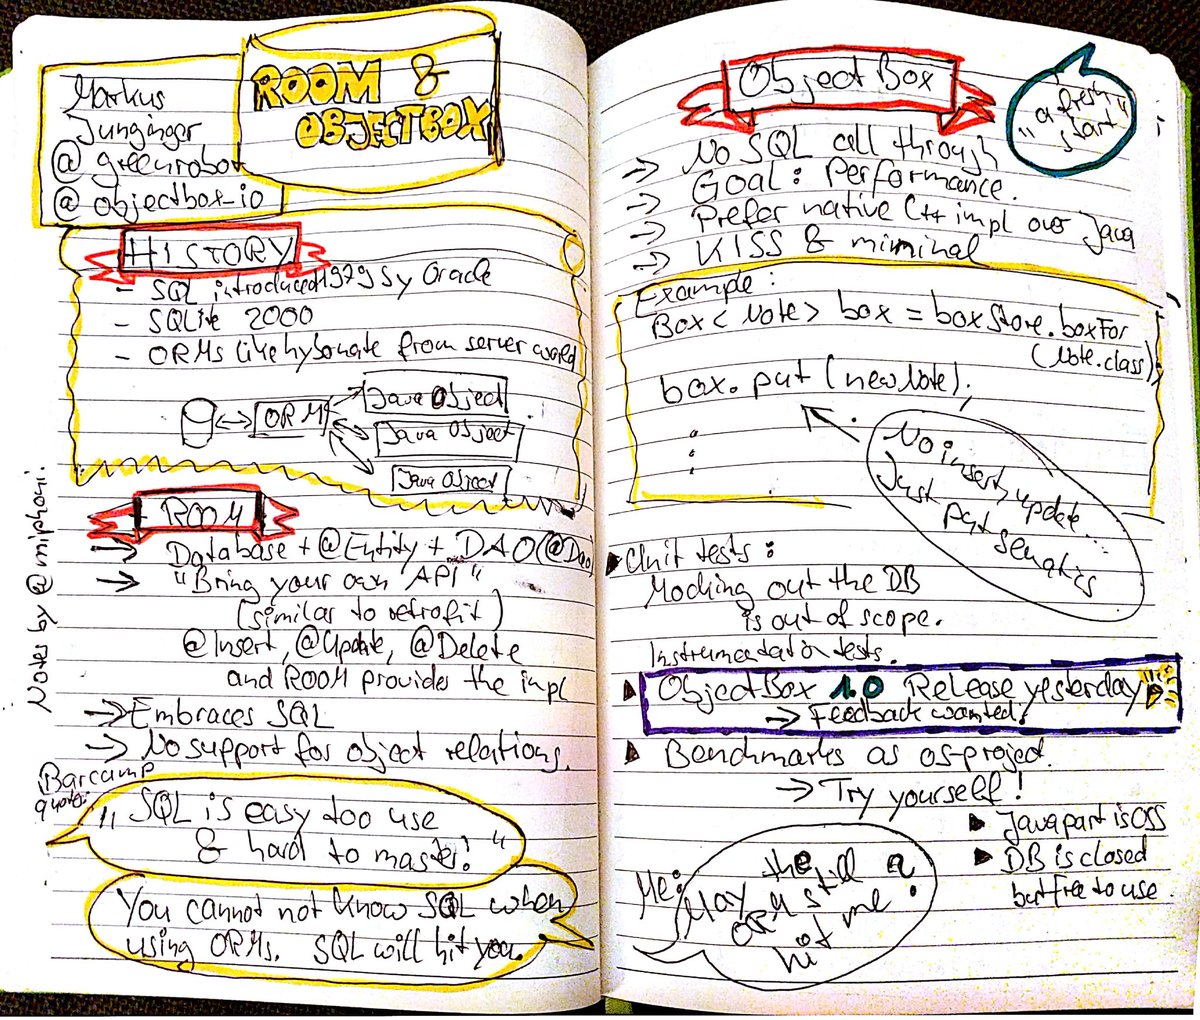 Markus
Junginger
@ greenrobot
@ objectbox_io
ROOM &
OBJECTBOX
HISTORY
- SQL introduced 1979 by Oracle
- SQLite 2000
- ORMs like hybonate from server world
ORM
Java Object
Java Object
Java Object
ROOM
→ Database + @Entity + DAO (@Dao)
→ "Bring your own API"
(similar to retrofit)
@Insert, @Update, @Delete
and ROOM provides the impl
→ Embraces SQL
→ No support for object relations.
Barcamp
quotes:
"SQL is easy too use
& hard to master!"
You cannot not know SQL when
using ORMs. SQL will hit you.
Notes by @miphoni.
ObjectBox
"a fresh
start"
→ No SQL call through
→ Goal: Performance.
→ Prefer native C++ impl over Java
→ KISS & miminal
Example:
Box<Note> box = boxStore.boxFor
(Note.class);
box.put(newNote);
No insert, update...
Just put semantics
▶ Unit tests:
Mocking out the DB
is out of scope.
Instrumentation tests.
▶ ObjectBox 1.0 Release yesterday
→ Feedback wanted!
▶ Benchmarks as os-project.
→ Try yourself!
▶ Java part is OSS
▶ DB is closed
but free to use.
Me:
May the
ORM still a
hit me!